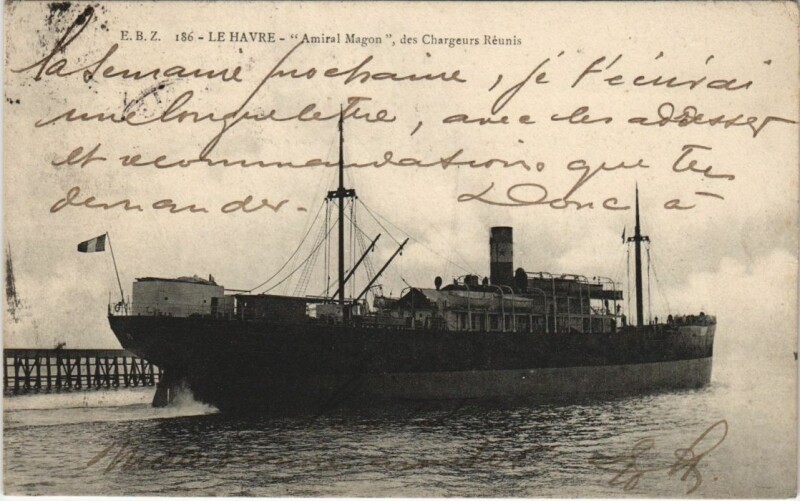 E.B.Z. 186 - LE HAVRE - "Amiral Magon", des Chargeurs Réunis
la semaine prochaine, je t'écrirai
une longue lettre, avec les adresses
et recommandations que tu
demander. Donc à